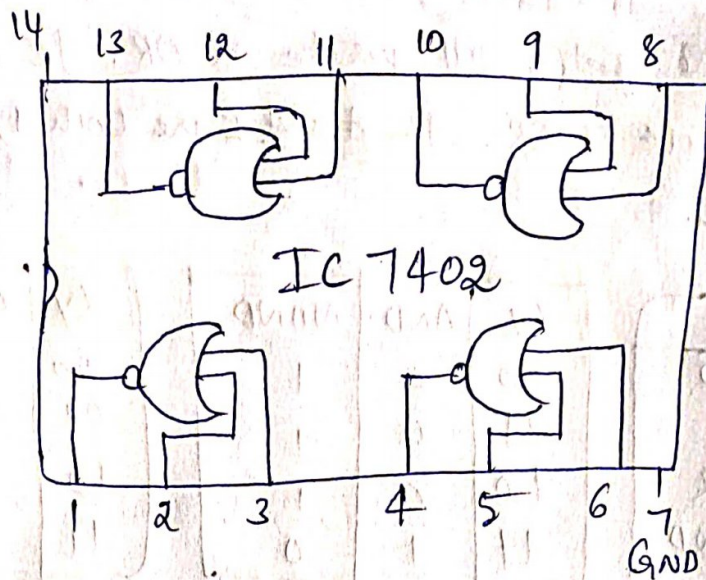 14 13 12 11 10 9 8
IC 7402
1 2 3 4 5 6 7
GND